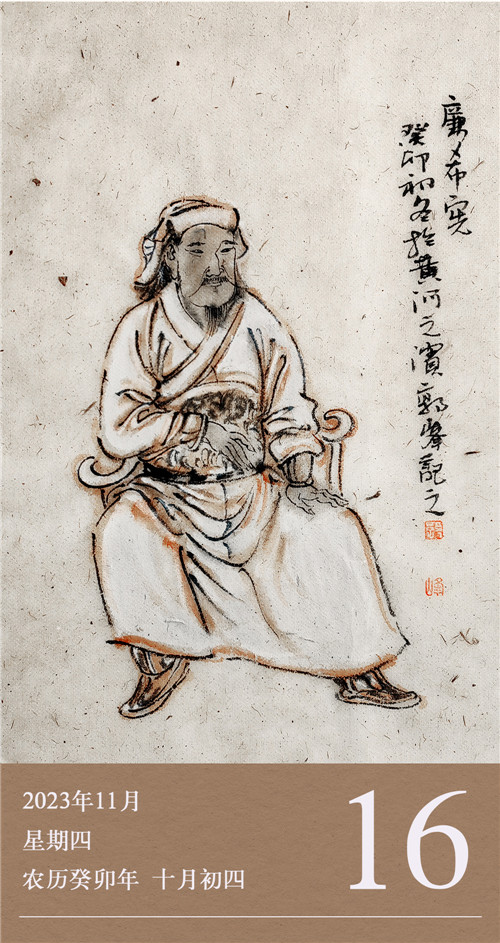 廉希宪
癸卯初冬於黄河之濱郭峰記之
2023年11月
星期四
农历癸卯年 十月初四
16